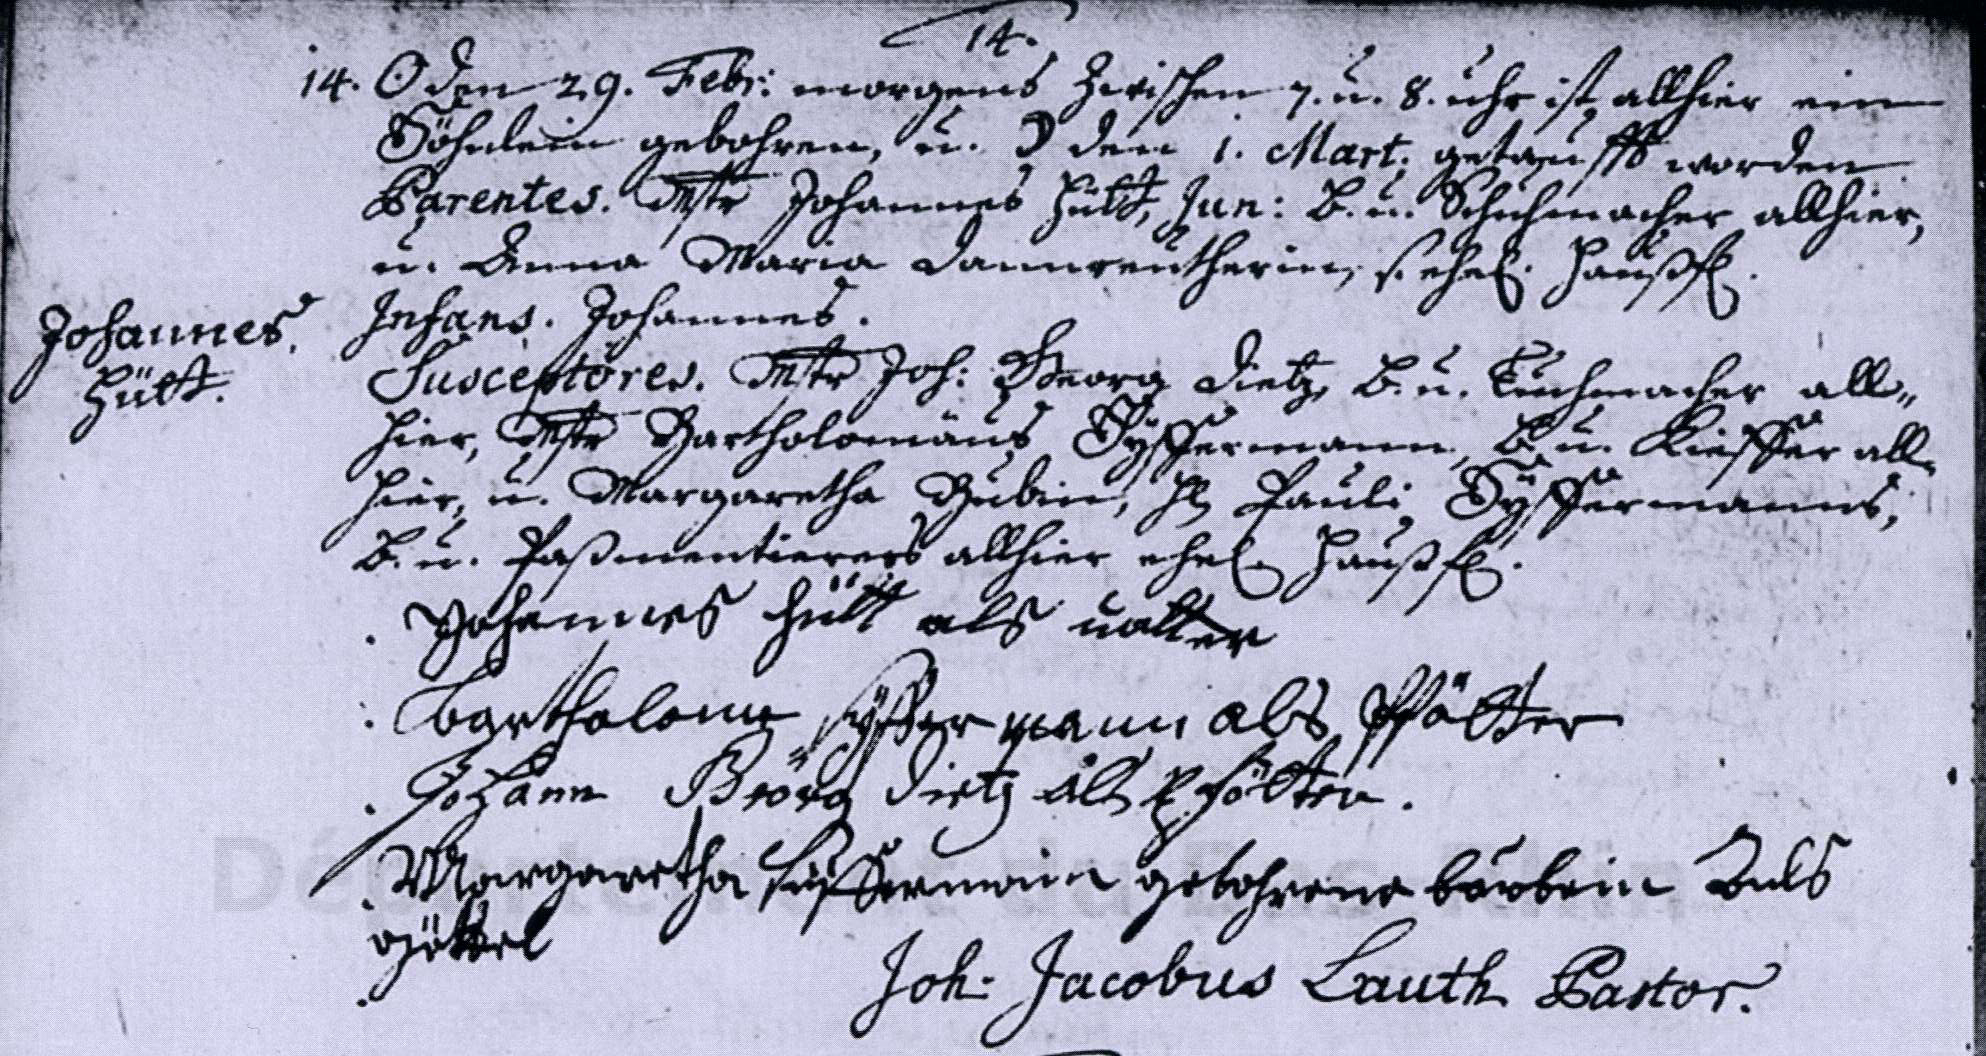 14.
14. ☉ den 29. Febr: morgens zwischen 7. u. 8. uhr ist allhier ein
Söhnlein gebohren, u. ☽ den 1. Mart. getaufft worden
Parentes. Mstr Johannes Hütt, Jun: B. u. Schuhmacher allhier,
u. Anna Maria Dannreutherin, s. ehel. Haußfr.
Johannes Hütt.
Infans. Johannes.
Susceptores. Mstr Joh: Georg Dietz, B. u. Tuchmacher all-
hier, Mstr Bartholomäus Süssermann, B. u. Kieffer all-
hier, u. Margaretha Bubin, H. Pauli Süssermanns,
B. u. Paßmentierers allhier ehel. Haußfr.
Johannes Hütt als vatter
Bartholome Süsserman als Pfätter
Johann Georg Dietz als Pfötter.
Margaretha Süssermänin gebohrene Als
göttel
Joh. Jacobus Lauth Pastor.
Département du Bas-Rhin